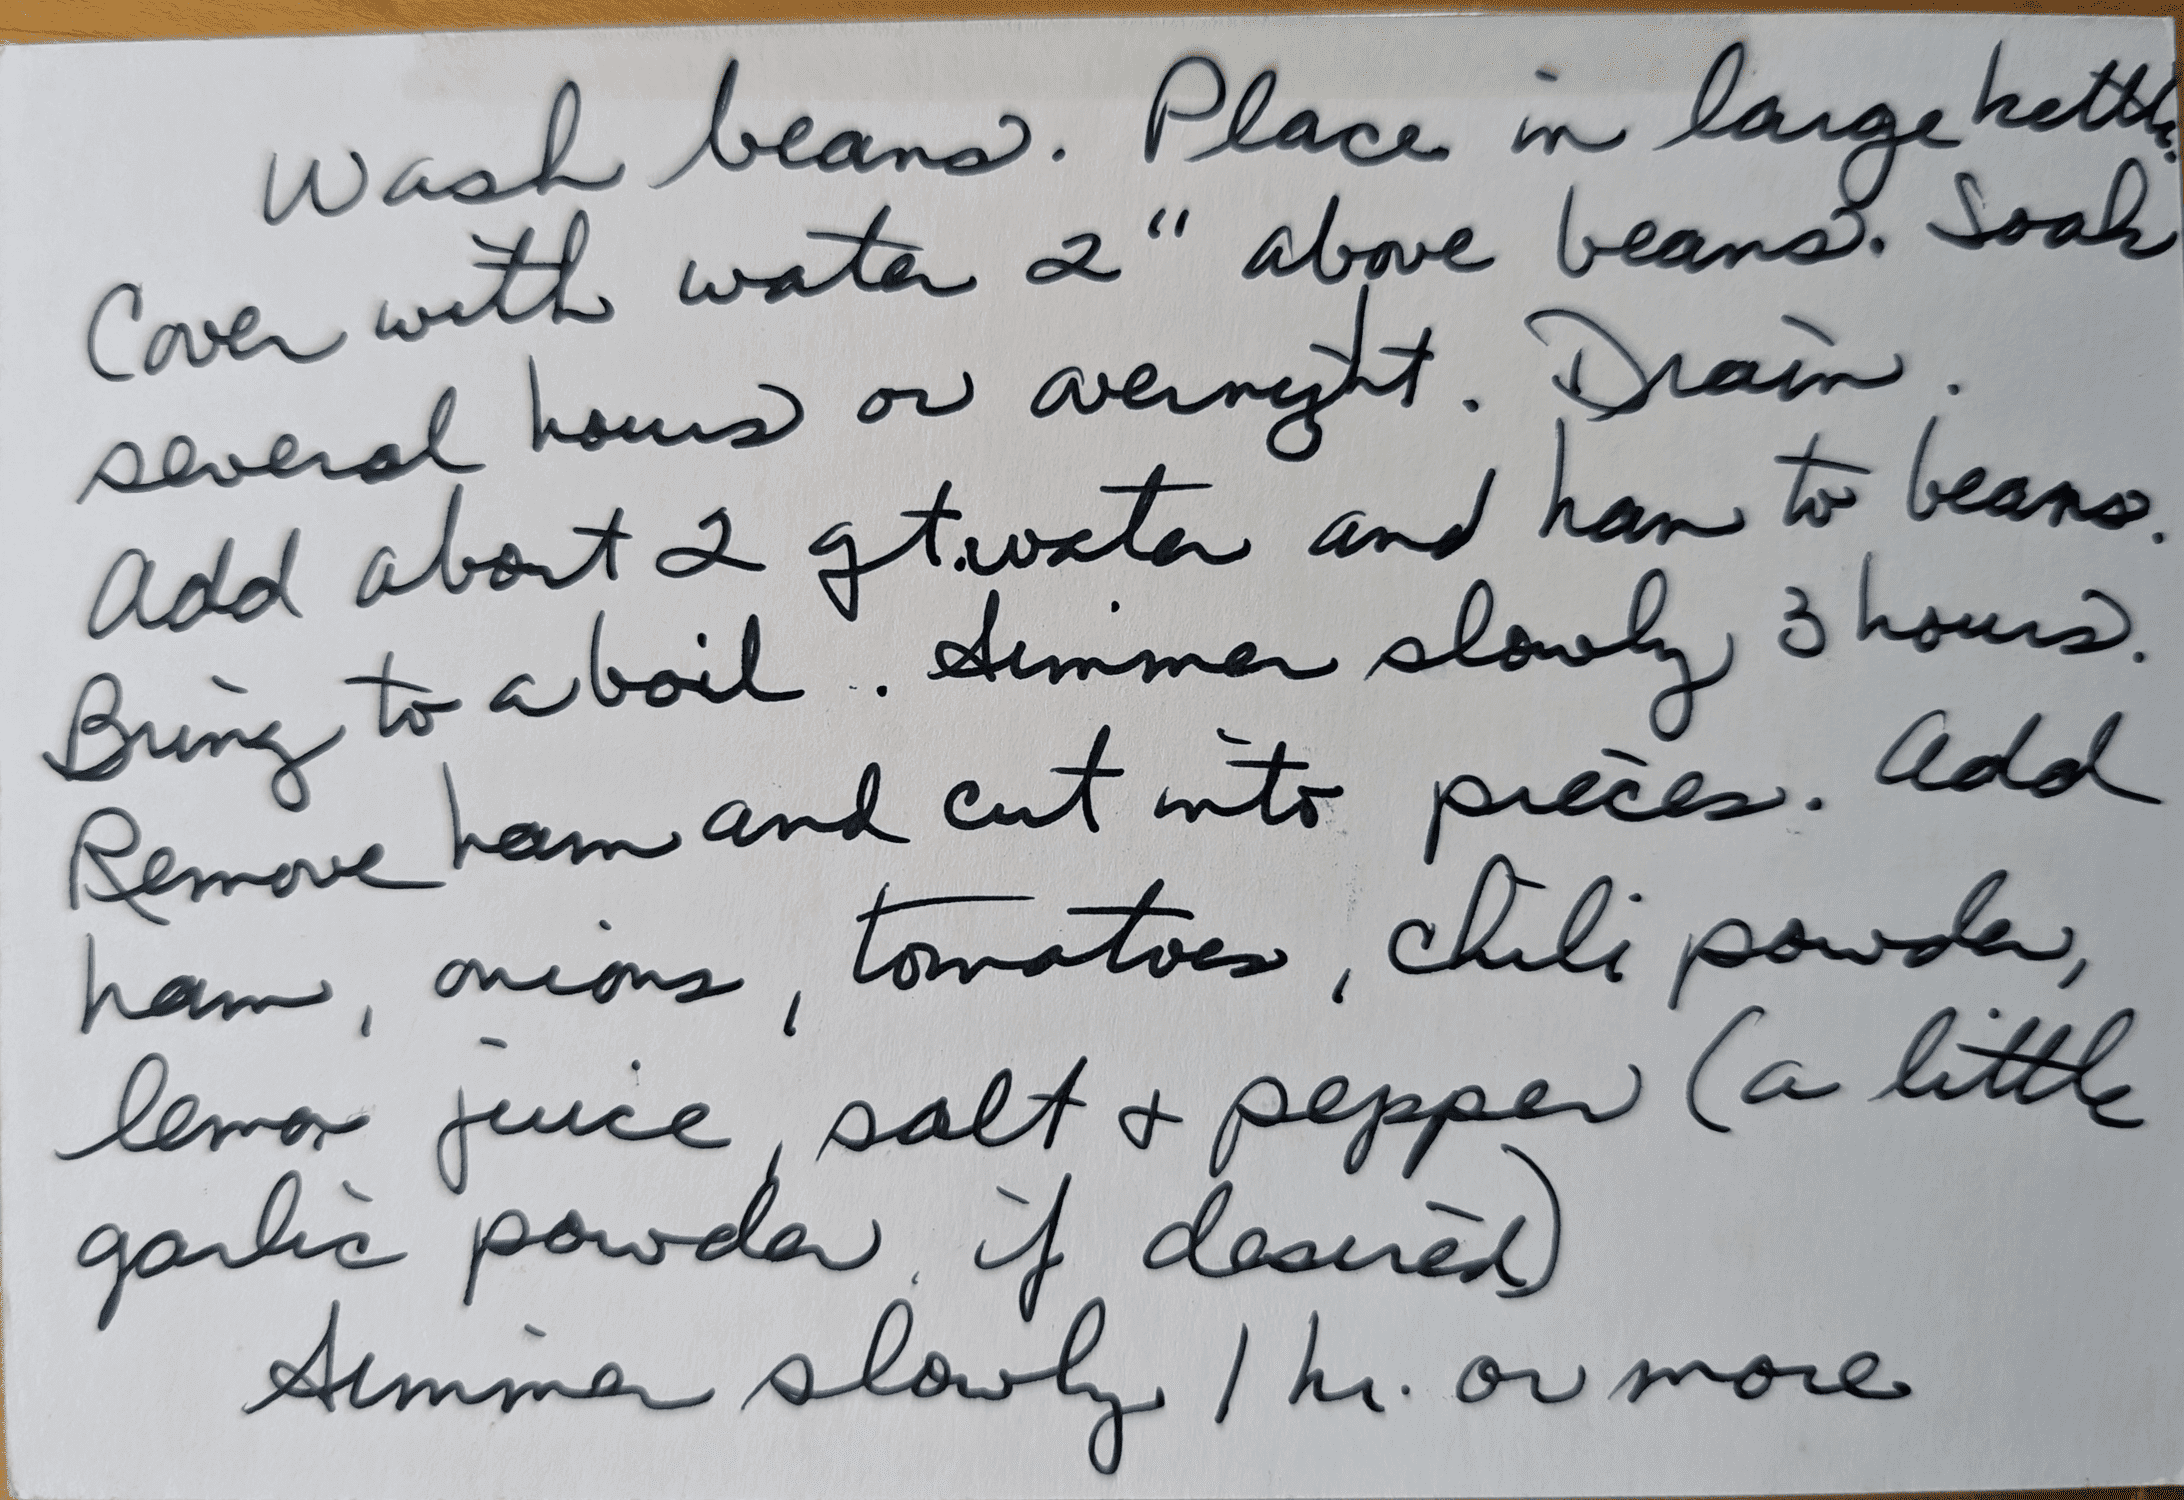 Wash beans. Place in large kettle.
Cover with water 2" above beans. Soak
several hours or overnight. Drain.
Add about 2 qt. water and ham to beans.
Bring to a boil. Simmer slowly 3 hours.
Remove ham and cut into pieces. Add
ham, onions, tomatoes, chili powder,
lemon juice, salt & pepper (a little
garlic powder if desired)
Simmer slowly 1 hr. or more